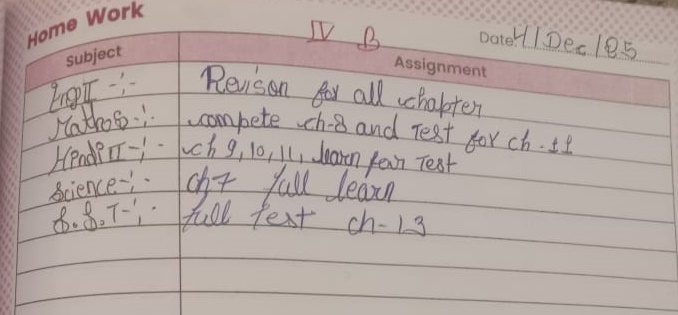 Home Work
IV B
Date: 4/Dec/25
Subject Assignment
EngII -:- Revison for all chapter
Maths -:- compete ch-8 and Test for ch-11
HendiII -:- ch 9,10,11, learn fear Test
Science -:- ch7 full learn
S.S.T -:- full test ch-13